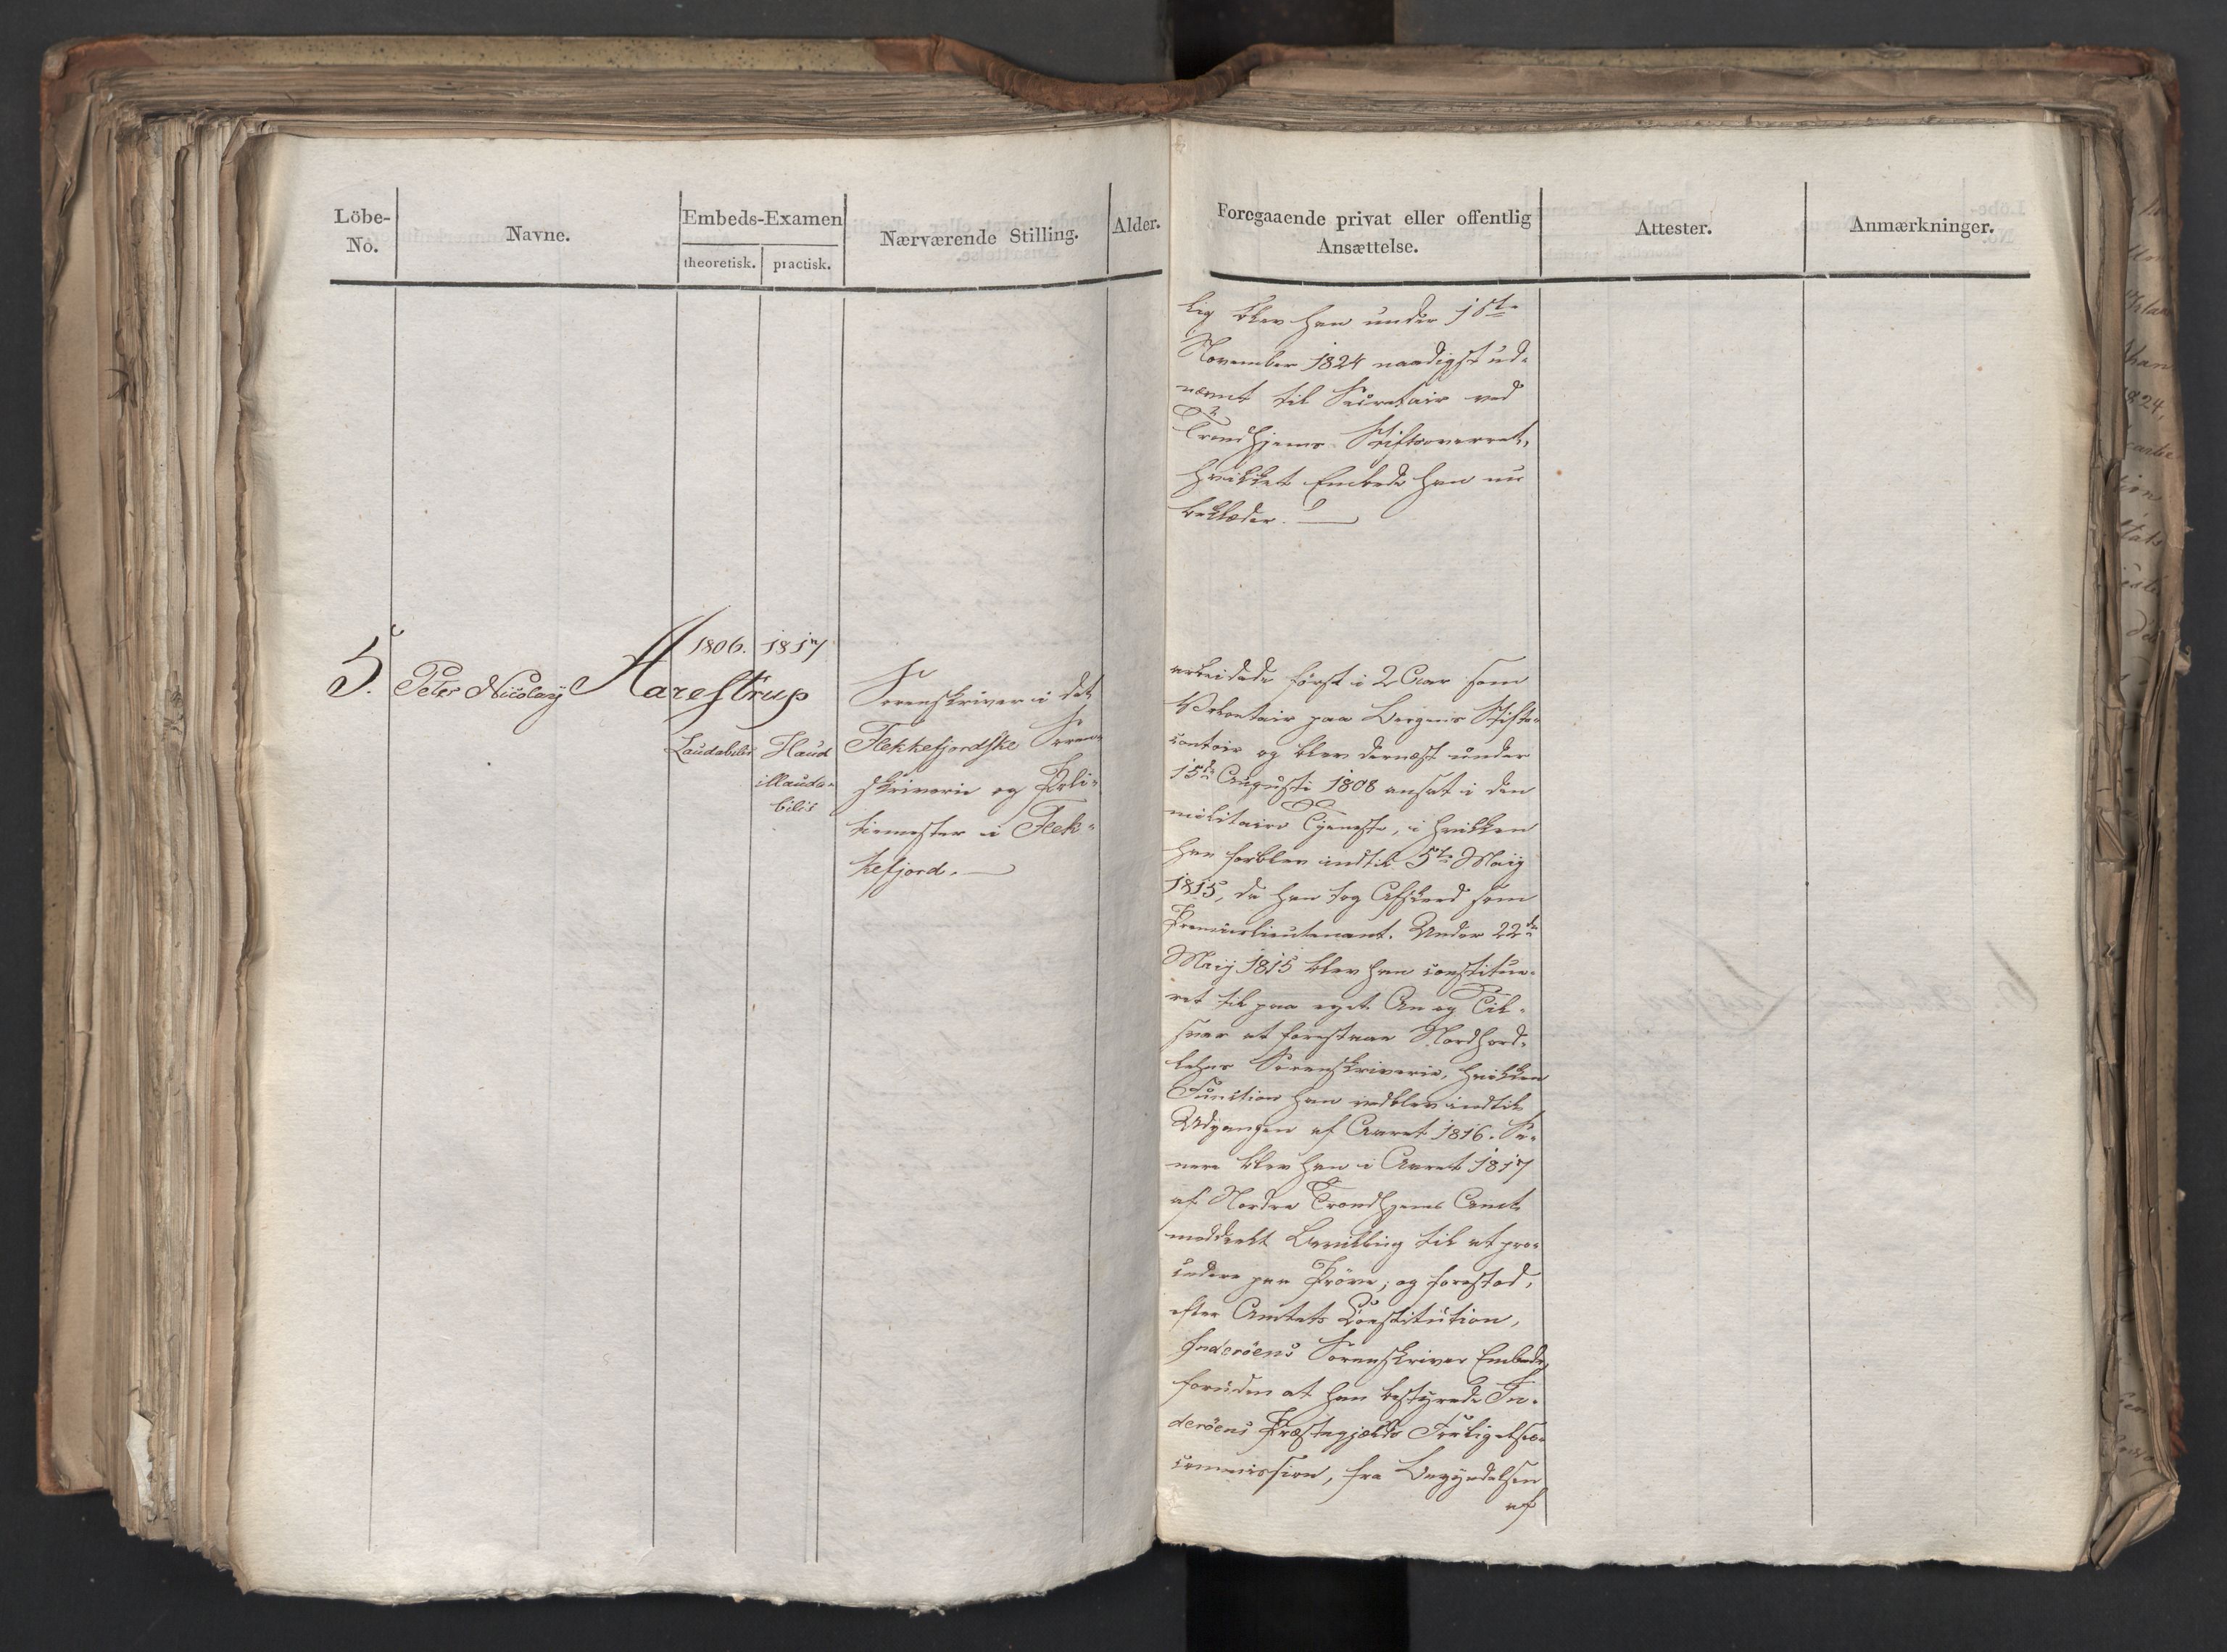 Löbe-
No.
Navne.
Embeds-Examen
theoretisk.
practisk.
Nærværende Stilling.
Alder.
5.
Peter Nicolay Aarestrup
1806.
1817
Laudabilis
Haud
illauda-
bilis
Sorenskriver i det
Flekkefjordske Soren-
skriverie og Poli-
tiemester i Flek-
kefjord. —
Foregaaende privat eller offentlig
Ansættelse.
Attester.
Anmærkninger.
lig blev han under 1ste
November 1824 naadigst ud-
nævnt til Secretair ved
Trondhjems Stiftsoverret,
hvilket Embede han nu
beklæder. —
arbeidede först i 2 Aar som
Volontair paa Bergens Stifts-
contoir og blev dernæst under
15de Augusti 1808 ansat i den
militaire Tjeneste, i hvilken
han forblev indtil 5te Maij
1815, da han tog Afskeed som
Premierlieutenant. Under 22de
Maij 1815 blev han constitue-
ret til paa eget An og Til-
svar at forestaae Nordhord-
lehns Sorenskriverie, hvilken
Function han vedblev indtil
Udgangen af Aaret 1816. Se-
nere blev han i Aaret 1817
af Nordre Trondhjems Amt
meddeelt Bevilling til at pro-
cedere paa Pröve; og forestod,
efter Amtets Constitution,
Inderöens Sorenskriver Embede,
foruden at han bestyrede In-
deröens Præstegjælds Forligelses-
commission, fra Begyndelsen
af